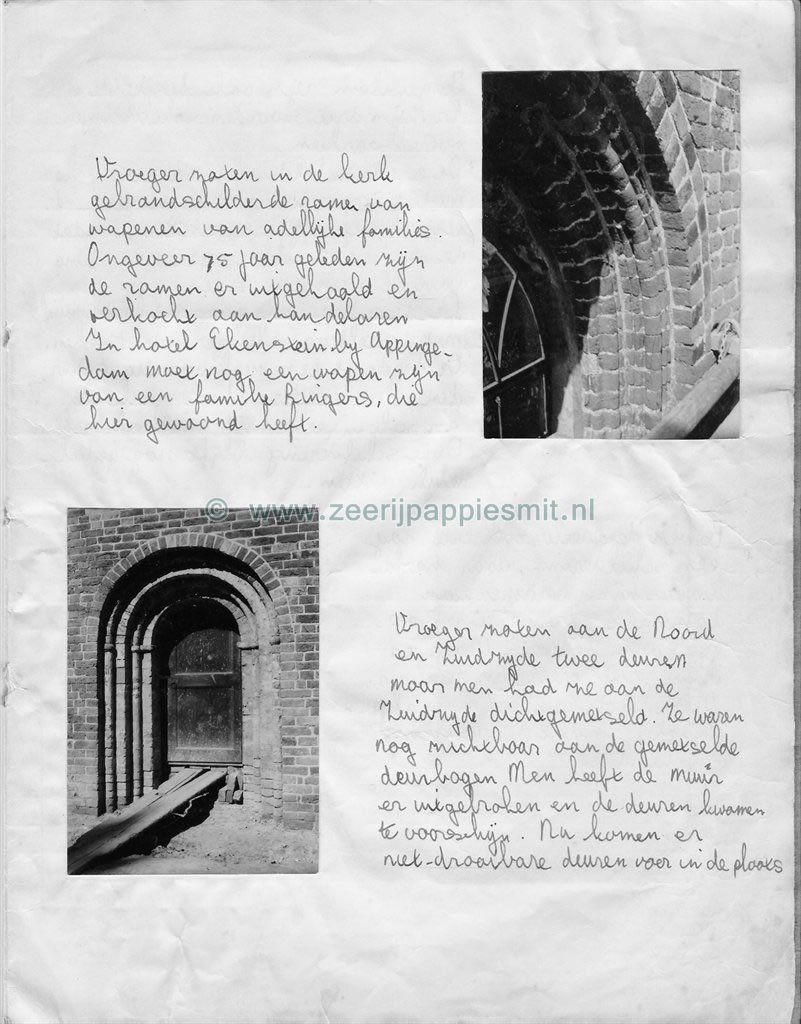 Vroeger zaten in de kerk
gebrandschilderde ramen van
wapenen van adellijke families.
Ongeveer 75 jaar geleden zijn
de ramen er uitgehaald en
verkocht aan handelaren
In hotel Ekenstein by Appinge-
dam moet nog een wapen zijn
van een familie Ringers, die
hier gewoond heeft.
© www.zeerijpappiesmit.nl
Vroeger zaten aan de Noord
en Zuidzyde twee deuren
maar men had ze aan de
Zuidzyde dichtgemetseld. Ze waren
nog zichtbaar aan de gemetselde
deurbogen Men heeft de muur
er uitgebroken en de deuren kwamen
te voorschijn. Nu komen er
niet-draaibare deuren voor in de plaats